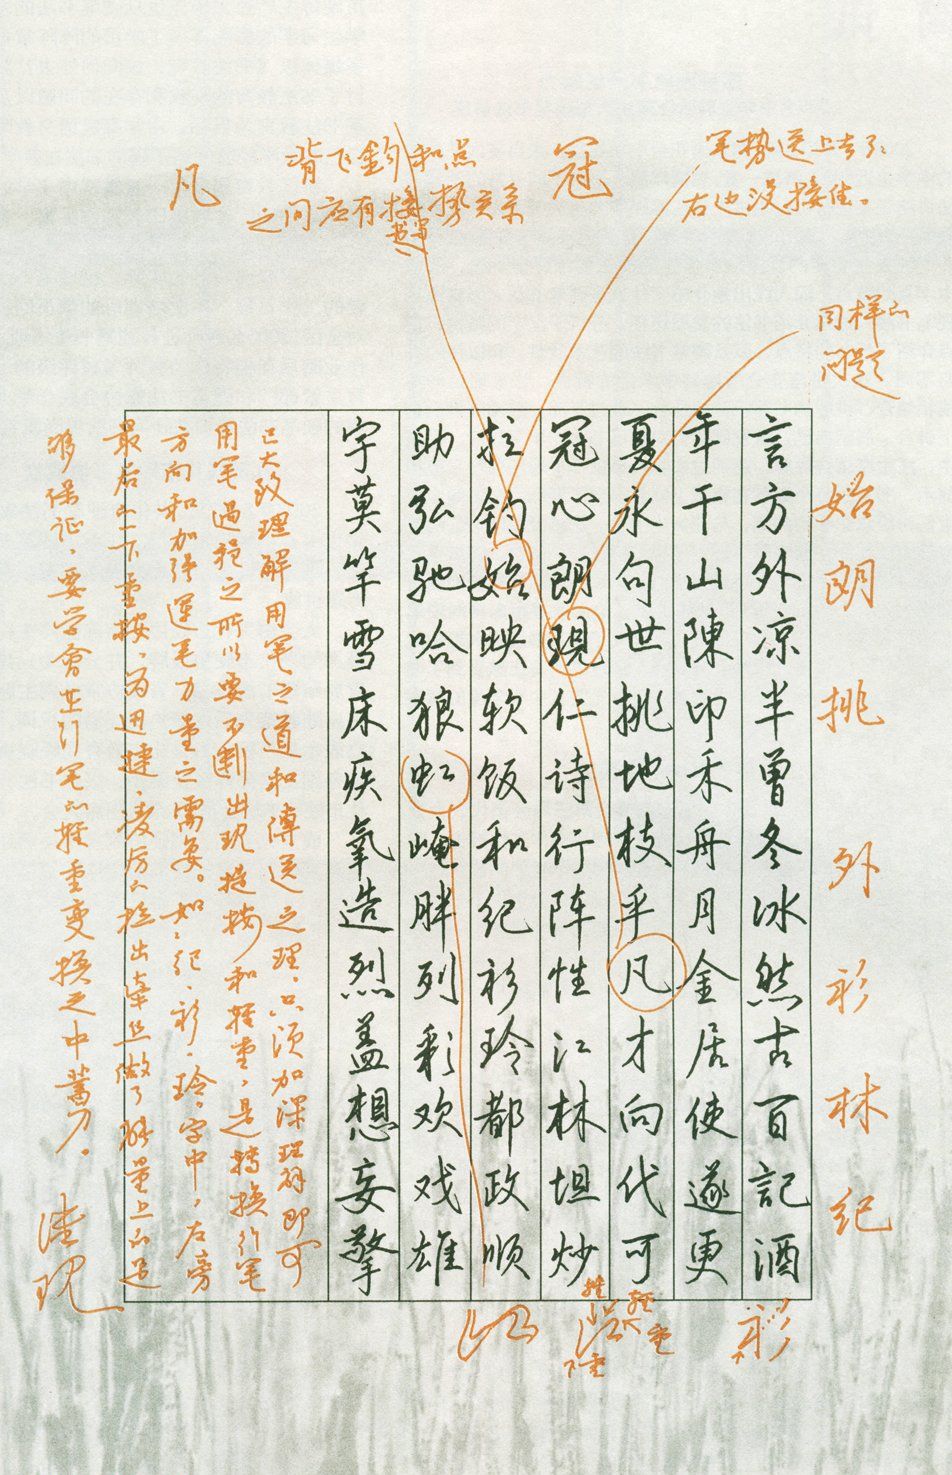 凡
背下鈎和点
之间应有接势关系
冠
笔势送上去了
右边没接住。
同样的
问题
始朗挑外彩林纪
言方外凉半曾冬冰然古百記酒
年干山陳印禾舟月金居使遂更
夏永句世挑地枝乎凡才向代可
冠心朗現仁诗行阵性江林坦炒
拉钧始映软饭和纪衫玲都政顺
助弘驰哈狼虹崦胖列彩欢戏雄
宇莫竿雪床疾氧造烈盖想妄擎
已大致理解用笔之道和傅送之理。只须加深理解即可
用笔过程之所以要不断出现提按和轻重，是转换行笔
方向和加强运笔力量之需要。如：纪、衫、玲，字中，左旁
最后的一下重按，为迅捷、凌厉的挑出牵丝做了能量上的足
够保证，要学會在引笔的轻重变换之中蓄力。
轻
下重
轻
重
彩